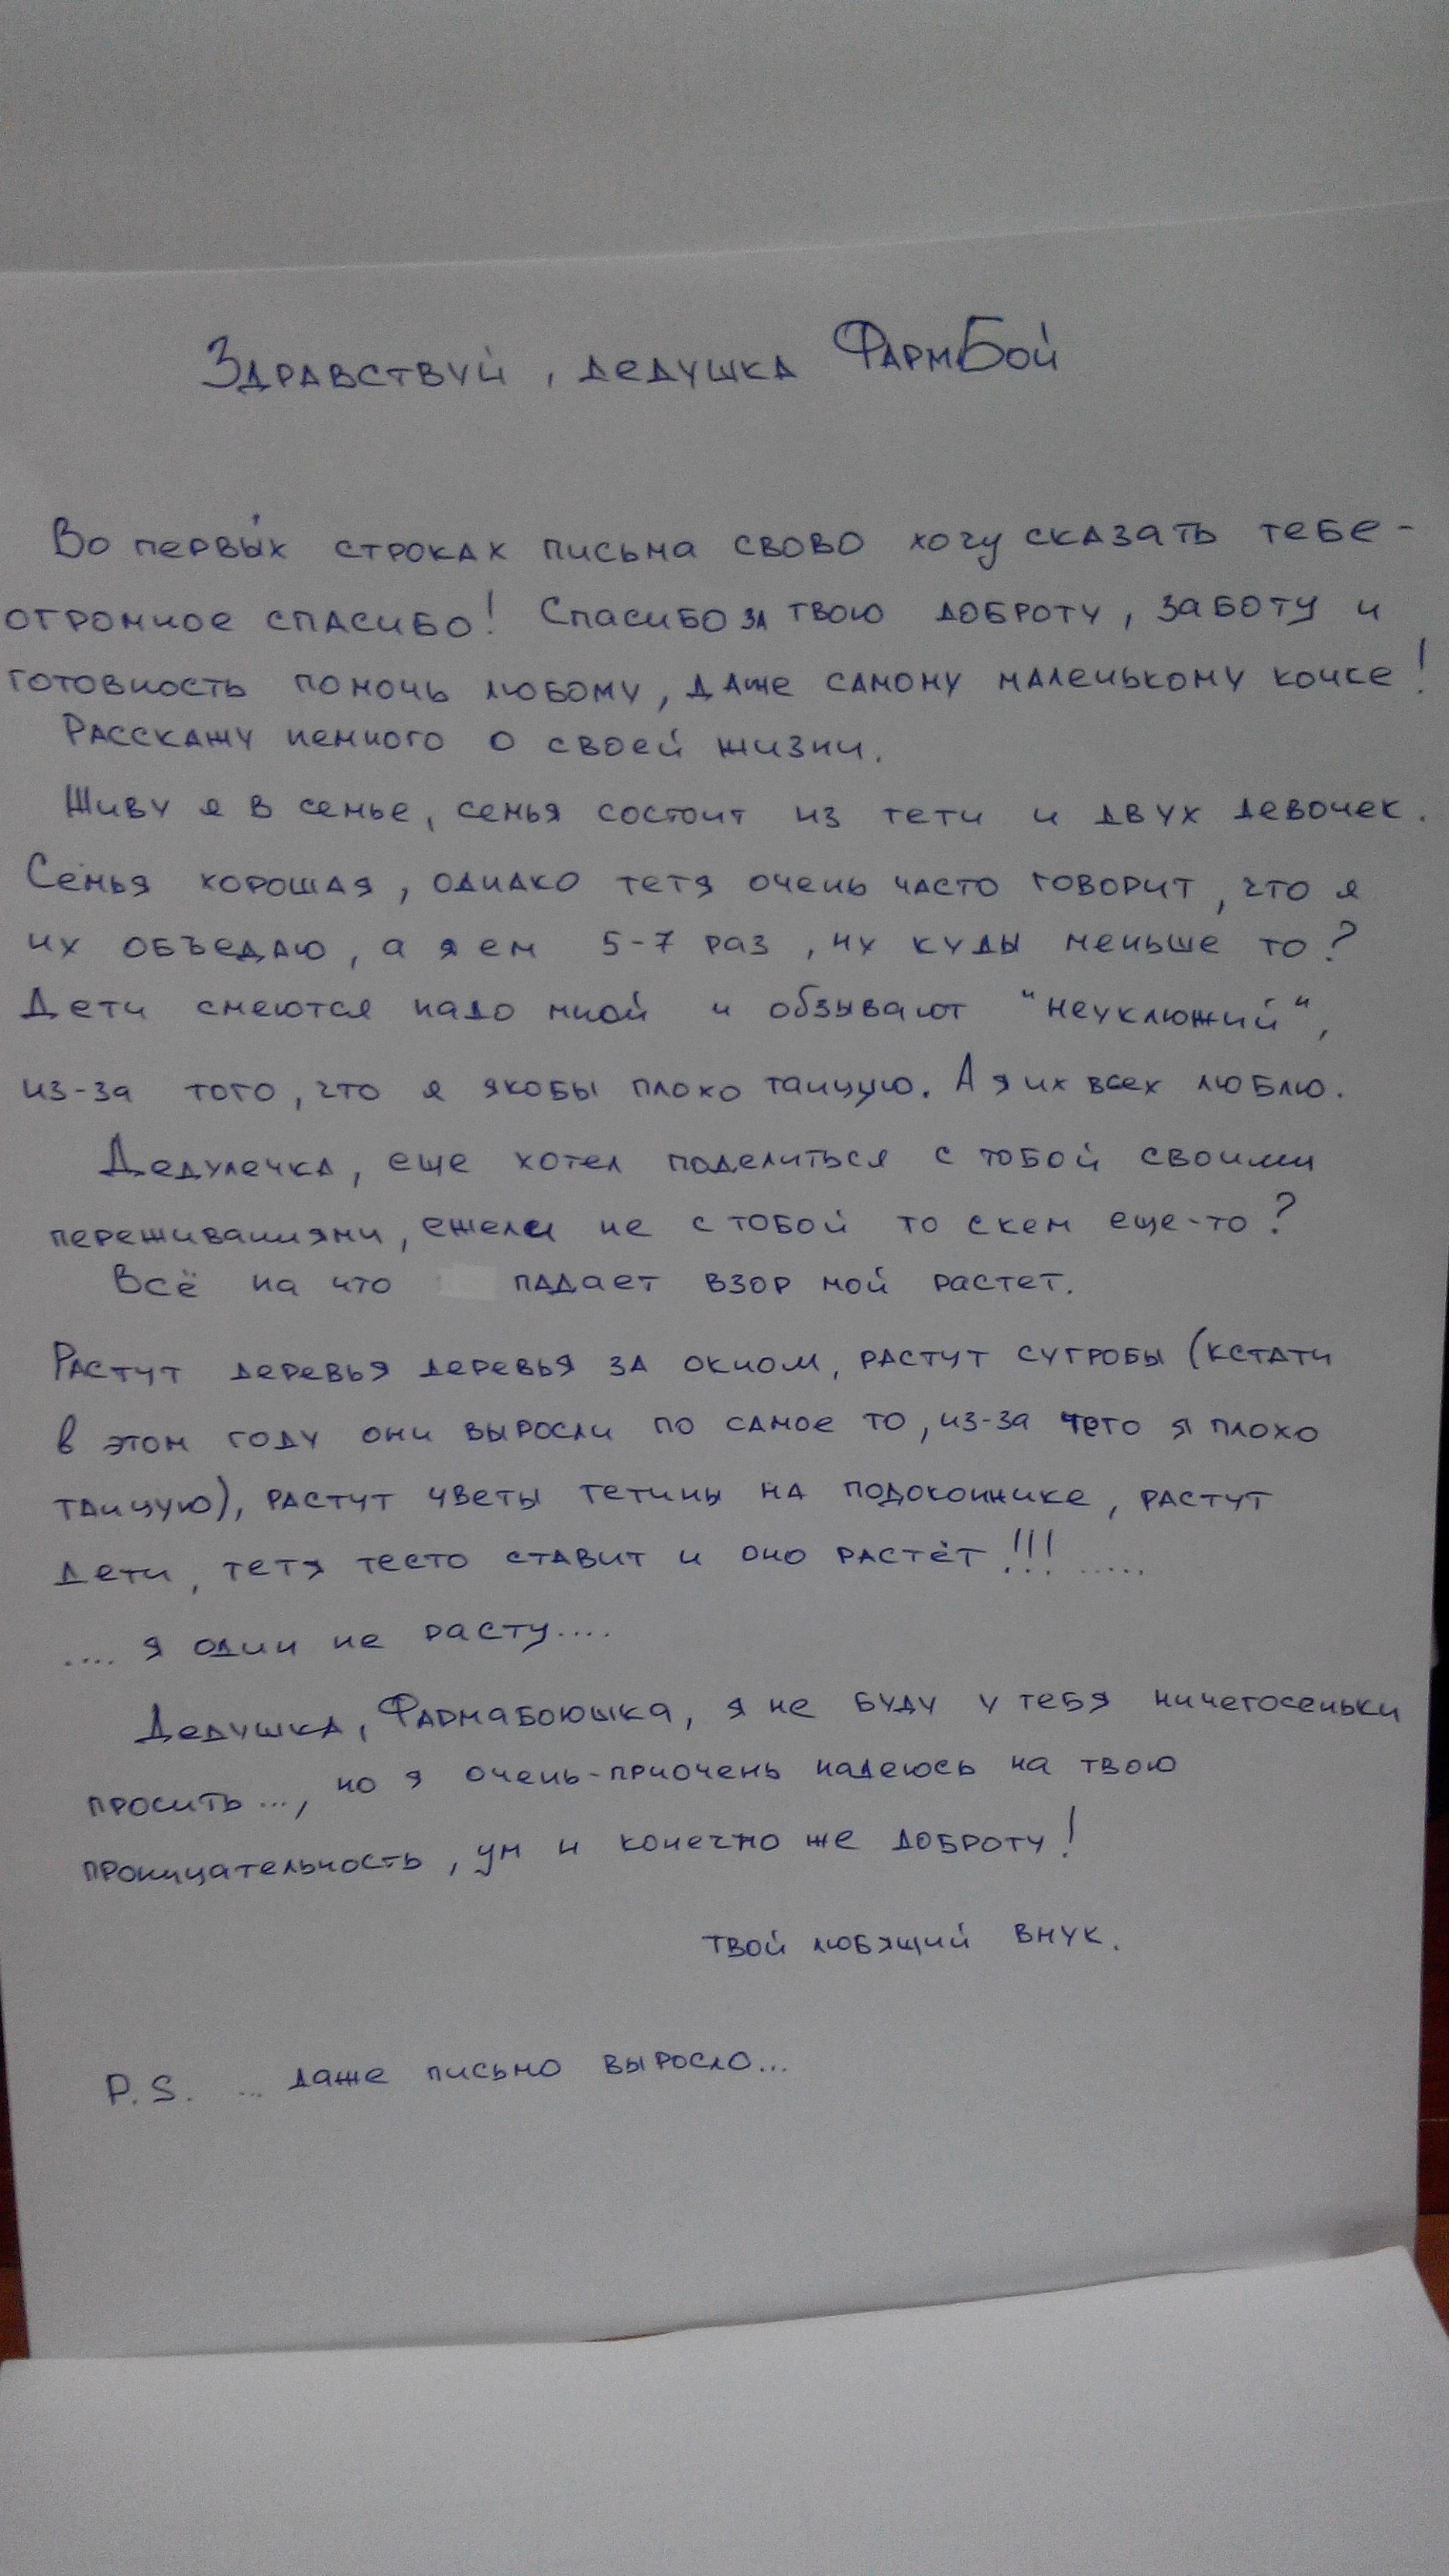 Здравствуй, дедушка ФармБой
Во первых строках письма свово хочу сказать тебе-
огромное спасибо! Спасибо за твою доброту, заботу и
готовность помочь любому, даже самому маленькому кочке!
Расскажу немного о своей жизни.
Живу я в семье, семья состоит из тети и двух девочек.
Семья хорошая, однако тетя очень часто говорит, что я
их объедаю, а я ем 5-7 раз, их куды меньше то?
Дети смеются надо мной и обзывают "неуклюжий",
из-за того, что я якобы плохо танцую. А я их всех люблю.
Дедулечка, еще хотел поделиться с тобой своими
переживаниями, ежели не с тобой то с кем еще-то?
Всё на что падает взор мой растет.
Растут деревья деревья за окном, растут сугробы (кстати
в этом году они выросли по самое то, из-за чего я плохо
танцую), растут цветы тетины на подоконнике, растут
дети, тетя тесто ставит и оно растёт!!! .....
.... я один не расту....
Дедушка, Фармабоюшка, я не буду у тебя ничегосеньки
просить..., но я очень-приочень надеюсь на твою
проницательность, ум и конечно же доброту!
твой любящий внук.
P.S. ... даже письмо выросло...